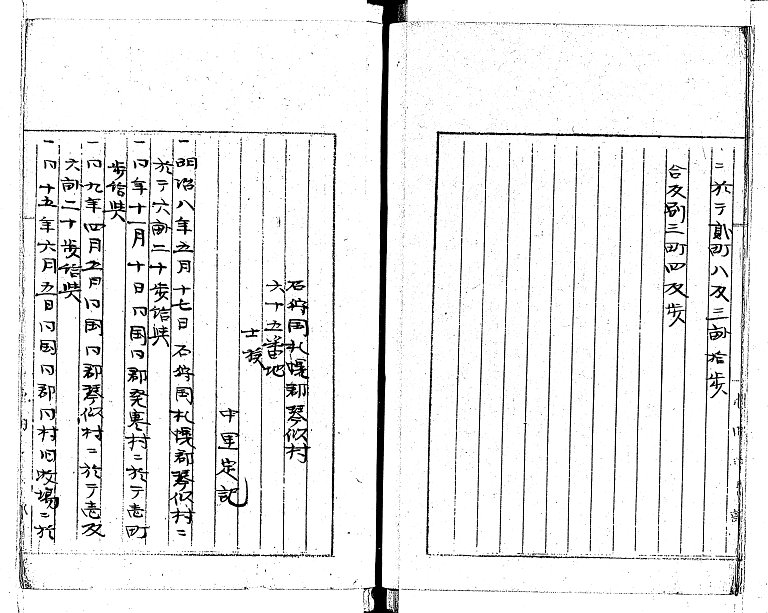 ニ於テ貳町八反三畝拾歩
合反別三町四反歩
石狩国札幌郡琴似村
六十五番地
士族
中里定記
一明治八年五月十七日石狩国札幌郡琴似村ニ
於テ六畝二十歩給與
一同年十一月十日同国同郡発寒村ニ於テ壱町
歩給與
一同九年四月五日同国同郡琴似村ニ於テ壱反
六畝二十歩給與
一同十五年六月五日同国同郡同村旧牧場ニ於